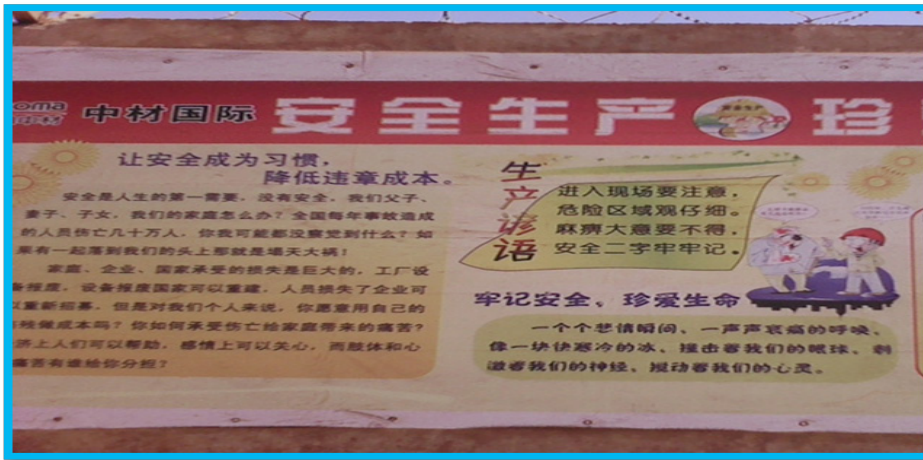 oma 中材国际 安全生产 珍
中材
让安全成为习惯，
降低违章成本。
安全是人生的第一需要，没有安全，我们父子、
妻子、子女，我们的家庭怎么办？全国每年事故造成
的人员伤亡几十万人，你我可能都没察觉到什么？如
果有一起落到我们的头上那就是塌天大祸！
家庭、企业、国家承受的损失是巨大的，工厂设
备报废，设备报废国家可以重建，人员损失了企业可
以重新招募，但是对我们个人来说，你愿意用自己的
残做成本吗？你如何承受伤亡给家庭带来的痛苦？
济上人们可以帮助，感情上可以关心，而肢体和心
痛苦有谁给你分担？
生产谚语
进入现场要注意，
危险区域观仔细。
麻痹大意要不得，
安全二字牢牢记。
牢记安全、珍爱生命
一个个悲情瞬间、一声声哀痛的呼唤，
像一块块寒冷的冰、撞击着我们的眼球、刺
激着我们的神经、搅动着我们的心灵。